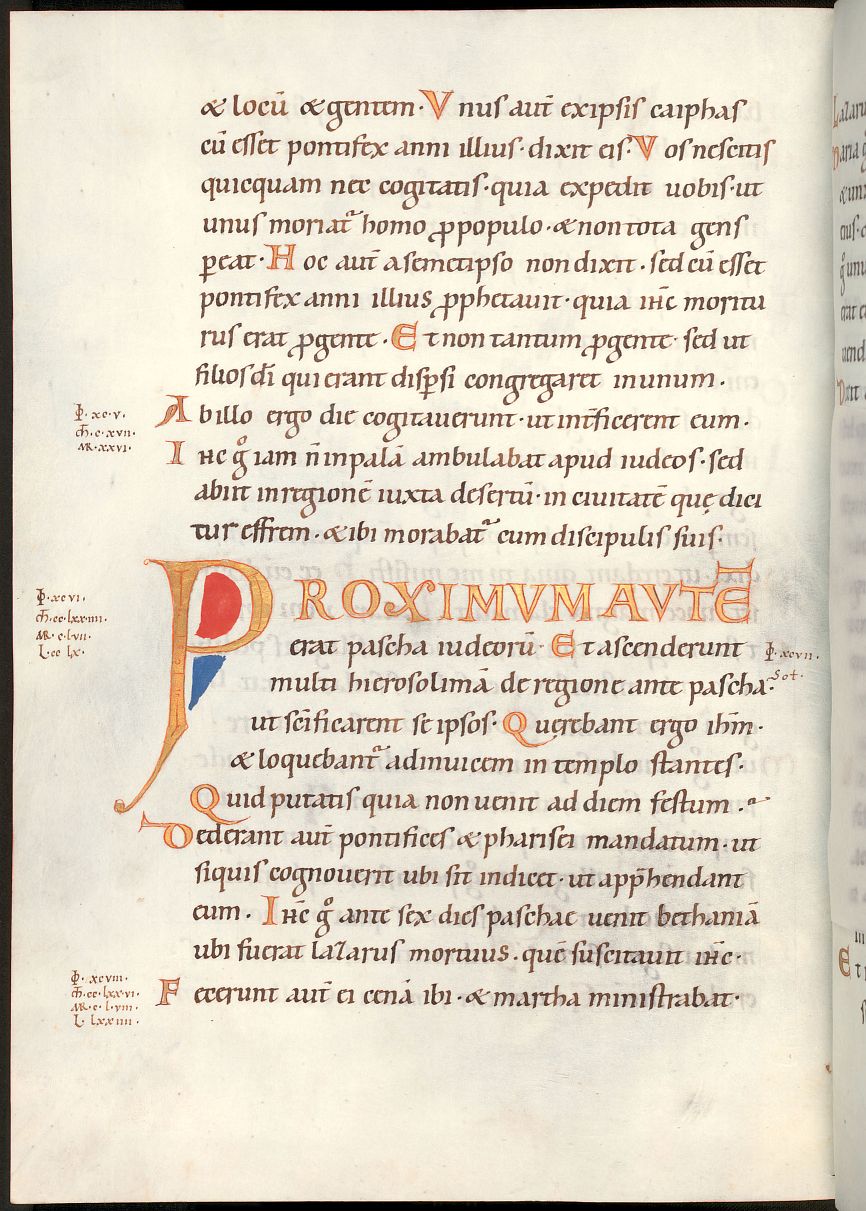 & locū & gentem · Vnus aut̄ ex ipsis caiphas
cū esset pontifex anni illius · dixit eis · Vos nescitis
quicquam nec cogitatis · quia expedit uobis · ut
unus moriat᷑ homo ꝓ populo · & non tota gens
ꝑeat · Hoc aut̄ a semetipso non dixit · sed cū esset
pontifex anni illius ꝓphetauit · quia ihc̄ moritu
rus erat ꝓ gente · Et non tantum ꝓ gente · sed ut
filios dī qui erant disꝑsi congregaret in unum ·
Ab illo ergo die cogitauerunt · ut int̄ficerent eum ·
Ihc̄ gͦ iam n̄ in palā ambulabat apud iudeos · sed
abiit in regionē iuxta desertū · in ciuitatē quę dici
tur effrem · & ibi morabat᷑ cum discipulis suis ·
PROXIMVM AVTĒ
erat pascha iudeorū · Et ascenderunt
multi hierosolimā de regione ante pascha ·
ut sc̄ificarent se ipsos · Querebant ergo ihm̄ ·
& loquebant᷑ ad inuicem in templo stantes ·
Quid putatis quia non uenit ad diem festum ·
Dederant aut̄ pontifices & pharisei mandatum · ut
siquis cognouerit ubi sit indicet · ut app̄hendant
eum · Ihc̄ gͦ ante sex dies paschae uenit bethaniā
ubi fuerat lazarus mortuus · quē suscitauit ihc̄ ·
Fecerunt aut̄ ei cenā ibi · & martha ministrabat ·
xc·v·
c·xvii·
MR·xxvi·
xcvi·
cc·lxx·iiii·
MR·c·lvii·
L·cc lx·
xcvii·
Sol·
xcviii·
cc·lxx·vi·
MR·c·l·viii·
L·lxxiiii·